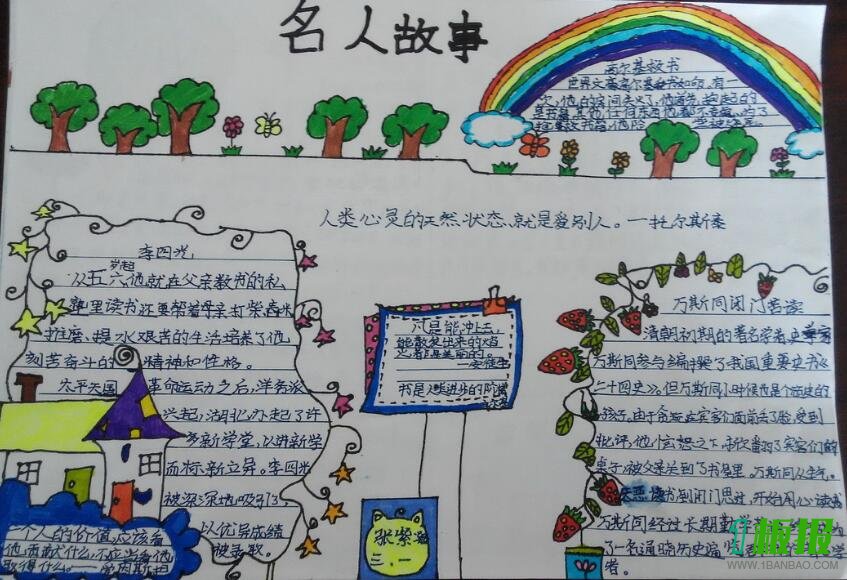 名人故事
高尔基救书
世界文豪高尔基爱书如命,有一
次,他的房间失火了,他首先抱起的
是书籍,其他任何东西他都不考虑,为了
抢救书籍,他险
人类心灵的天然状态,就是爱别人。一托尔斯泰
李四光,
从五六岁起他就在父亲教书的私
塾里读书还要帮着母亲打柴、舂米
推磨、提水艰苦的生活培养了他
刻苦奋斗的精神和性格。
太平天国革命运动之后,洋务派
兴起,湖北办起了许
多新学堂,以进新学
而标新立异。李四光
被深深地吸引了,
以优异成绩
被录取。
一个人的价值应该看
他贡献什么,不应当看他
取得什么。——爱因斯坦
只是能冲去,
能散发出来的火焰
忍者都是美丽的。
一安徒生
书是人类进步的阶梯
张紫
三.一
万斯同闭门苦读
清朝初期的著名学者、史学家
万斯同参与编撰了我国重要史书《
二十四史》。但万斯同小时候也是个顽皮的
孩子。由于贪玩在宾客们面前丢了脸,受到
批评,他恼怒之下,掀翻了宾客们的
桌子,被父亲关到了书屋里。万斯同从生气、
厌恶读书到闭门思过,开始用心读书
万斯同经过长期勤学
了一名通晓历史
者。
板报
WWW.1BANBAO.COM